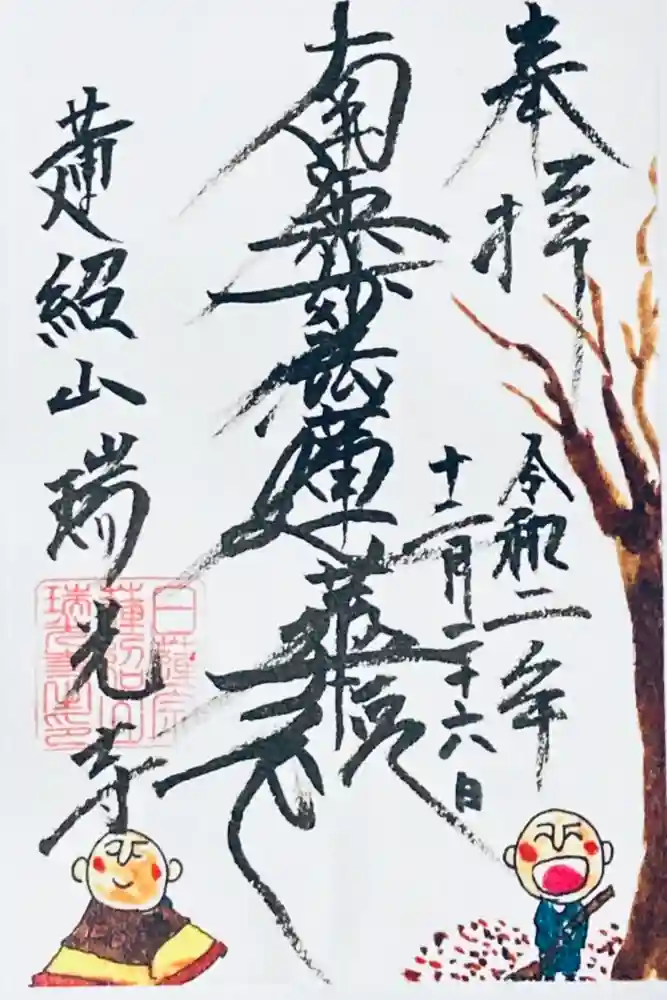 奉拝
令和二年
十二月二十六日
南無妙法蓮華経
蓮紹山瑞光寺
日蓮宗
蓮紹山